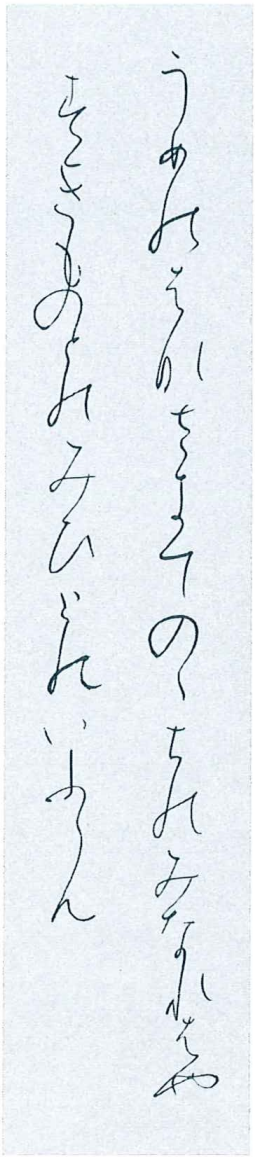 うめのはなさきてのゝちのみなれはや
すきものとのみひとのいふらん